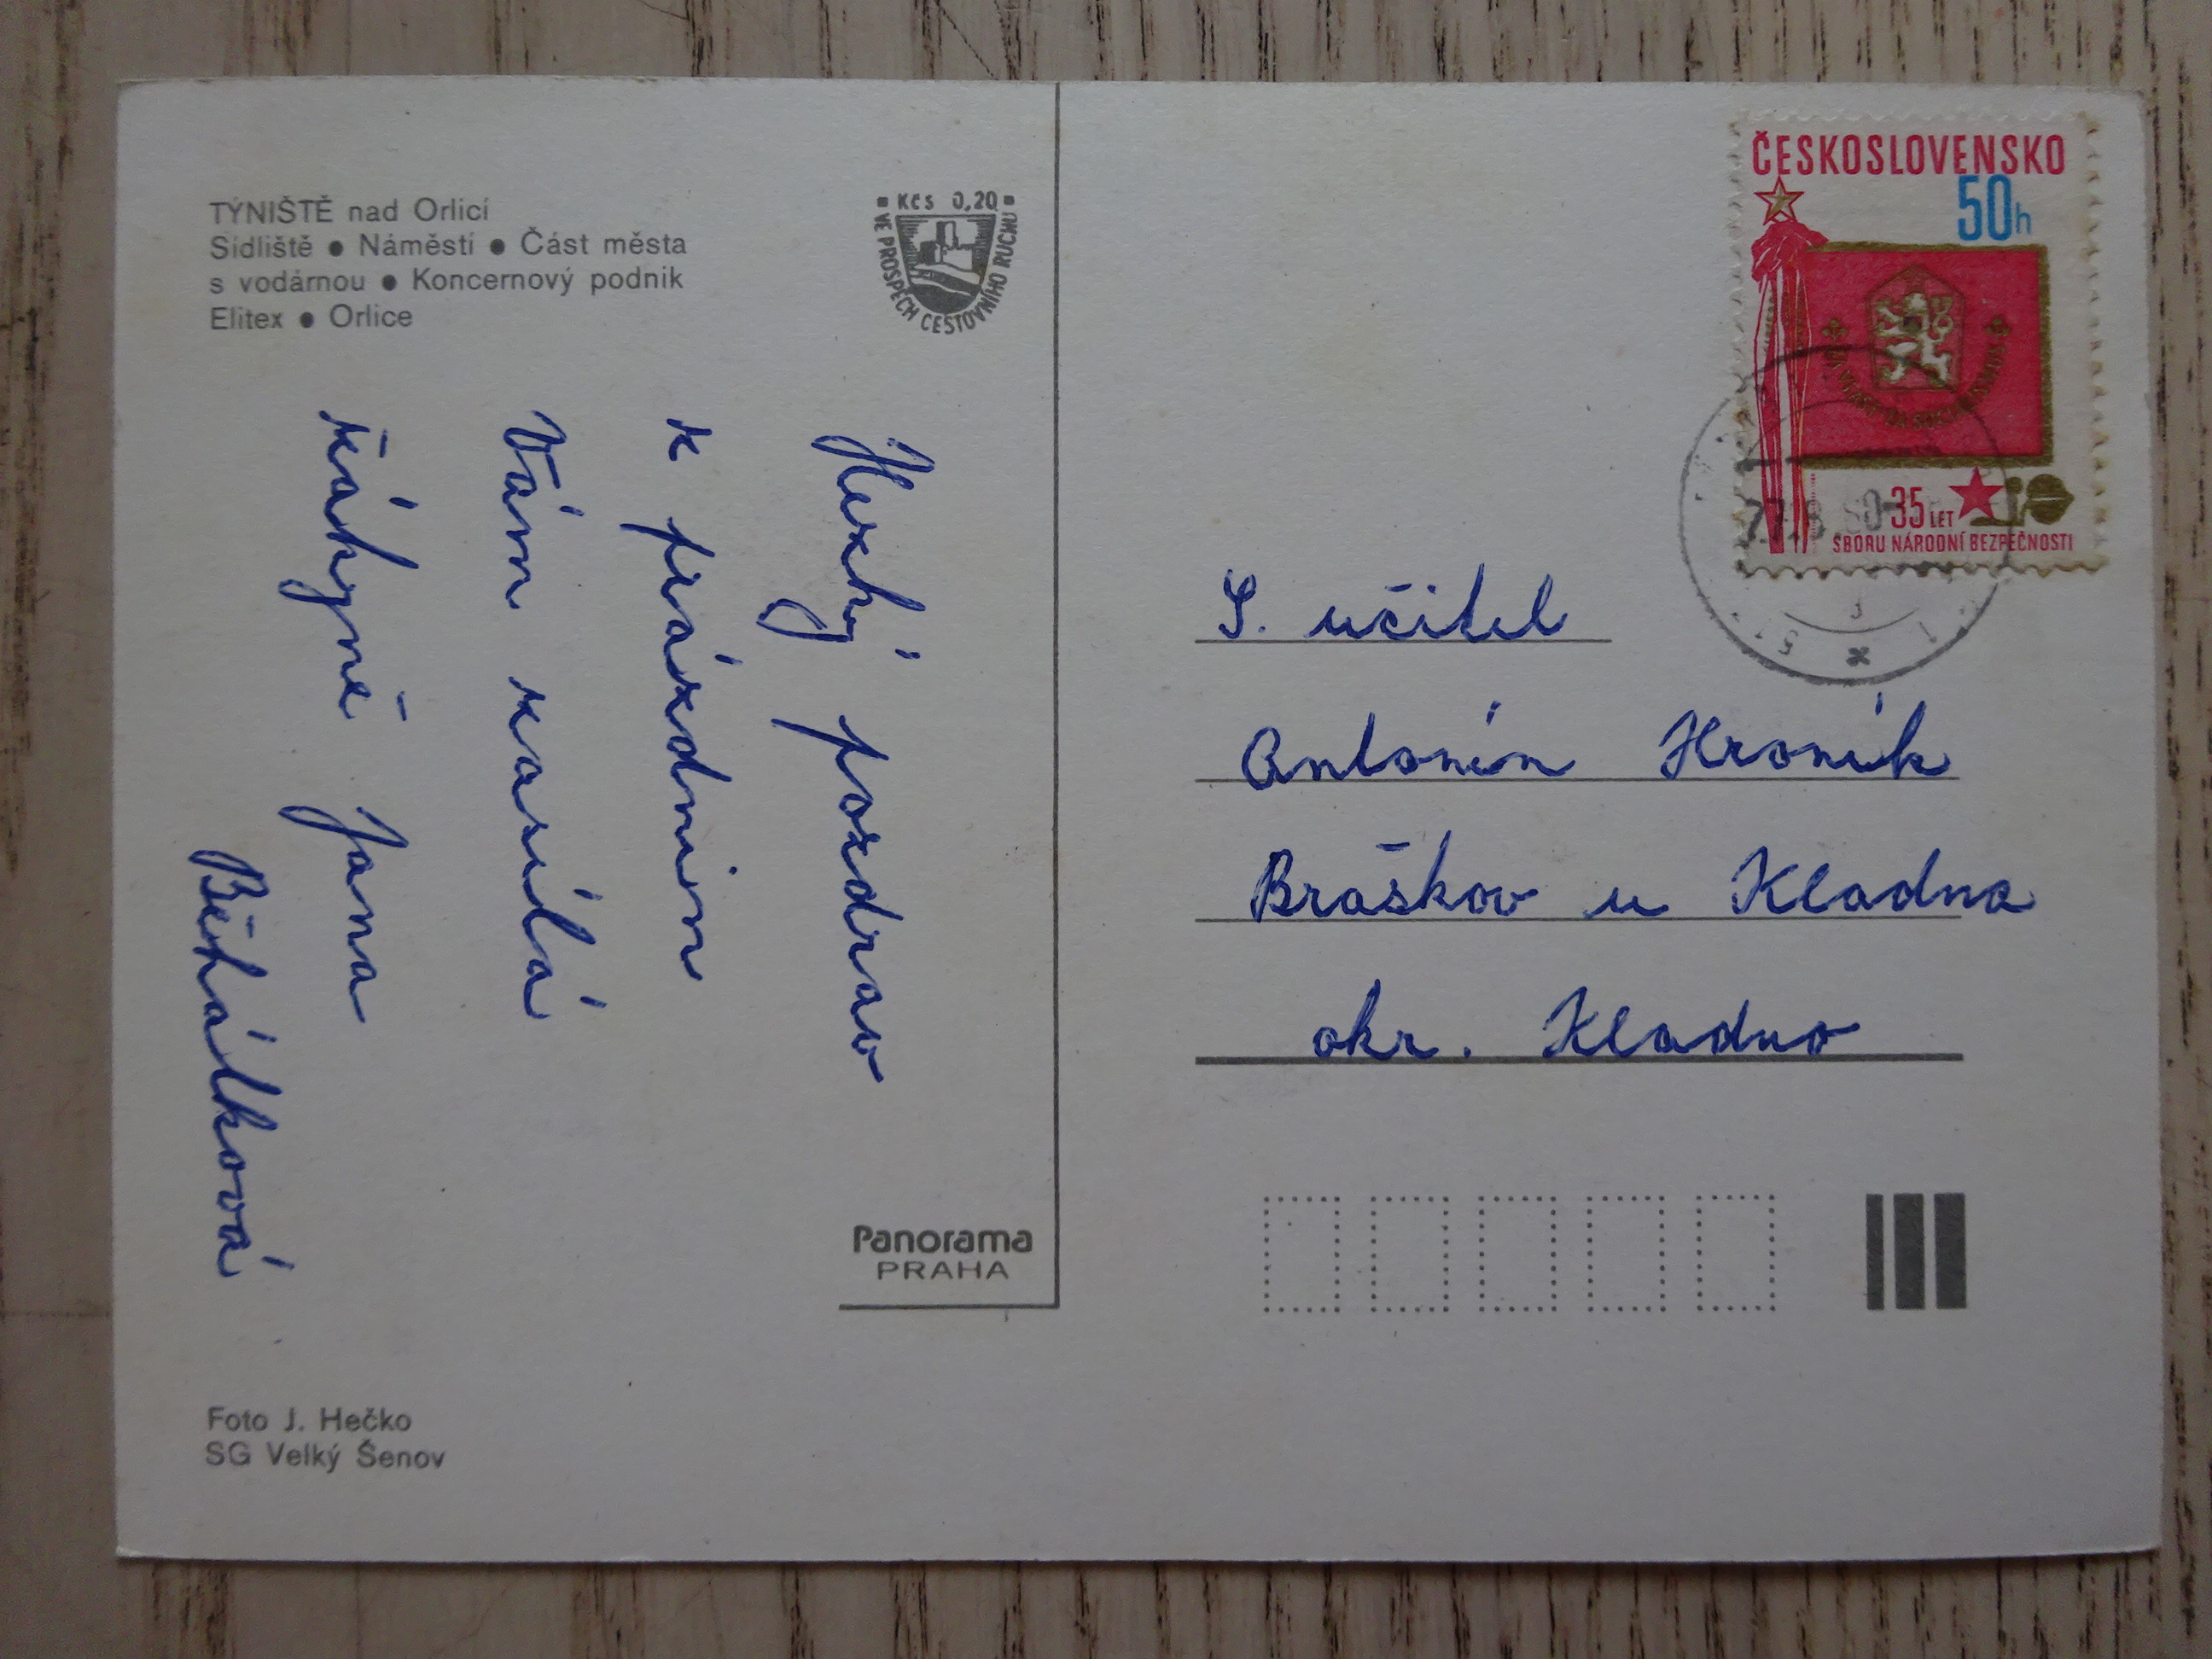 TÝNIŠTĚ nad Orlicí
Sídliště ● Náměstí ● Část města
s vodárnou ● Koncernový podnik
Elitex ● Orlice
Kčs 0,20
VE PROSPĚCH CESTOVNÍHO RUCHU
Hezký pozdrav
z prázdnin
Vám zasílá
žákyně Jana
Běhálková
Panorama
PRAHA
Foto J. Hečko
SG Velký Šenov
ČESKOSLOVENSKO
50h
35 LET
SBORU NÁRODNÍ BEZPEČNOSTI
S. učitel
Antonín Hroník
Braškov u Kladna
okr. Kladno